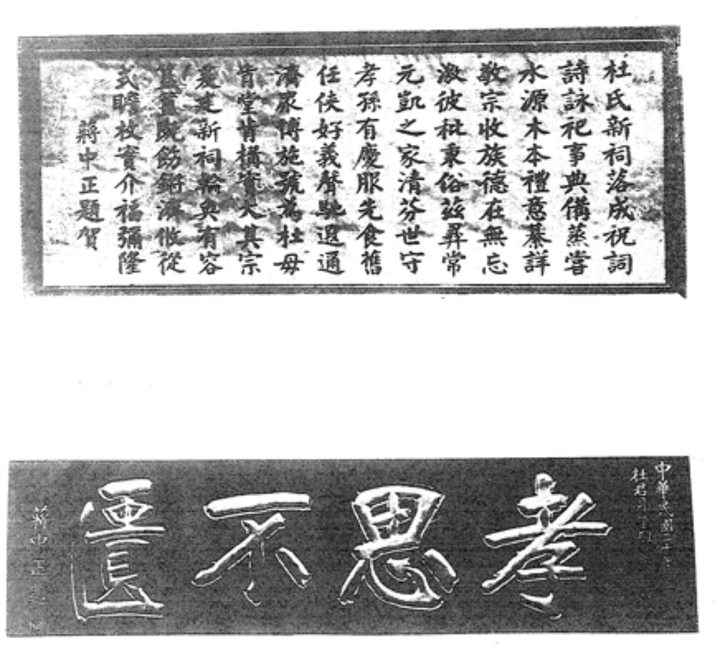 杜氏新祠落成祝詞
詩詠祀事典備蒸嘗
水源木本禮意綦詳
敬宗收族德在無忘
激彼秕秉俗茲彝常
元凱之家清芬世守
孝孫有慶服先食舊
任俠好義聲馳遐通
濟眾博施號為杜母
肯堂肯構實大其宗
爰建新祠輪奐有容
簠簋既飭鏘濟攸從
式瞻枚實介福彌隆
蔣中正題賀
中華民國二十
杜君
孝思不匱
蔣中正